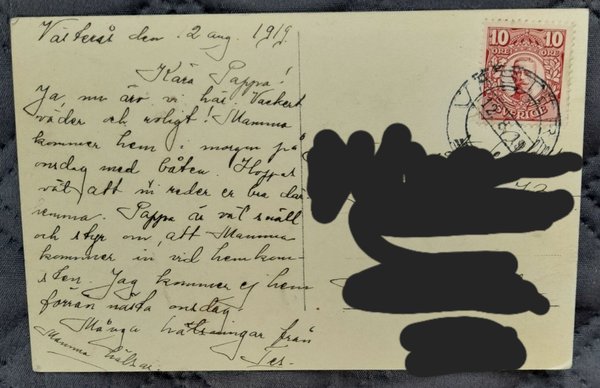 Västerås den 2 aug. 1919
Kära Pappa!
Ja nu äro vi här. Vackert
väder och roligt! Mamma
kommer hem i morgon på
onsdag med båten. Hoppas
väl att ni reder er bra där
hemma. Pappa är väl snäll
och styr om, att Mamma
kommer in vid hemkom-
sten. Jag kommer ej hem
förrän nästa onsdag.
Många hälsningar från
Mamma hälsar.
10 10
ÖRE ÖRE
SVERIGE